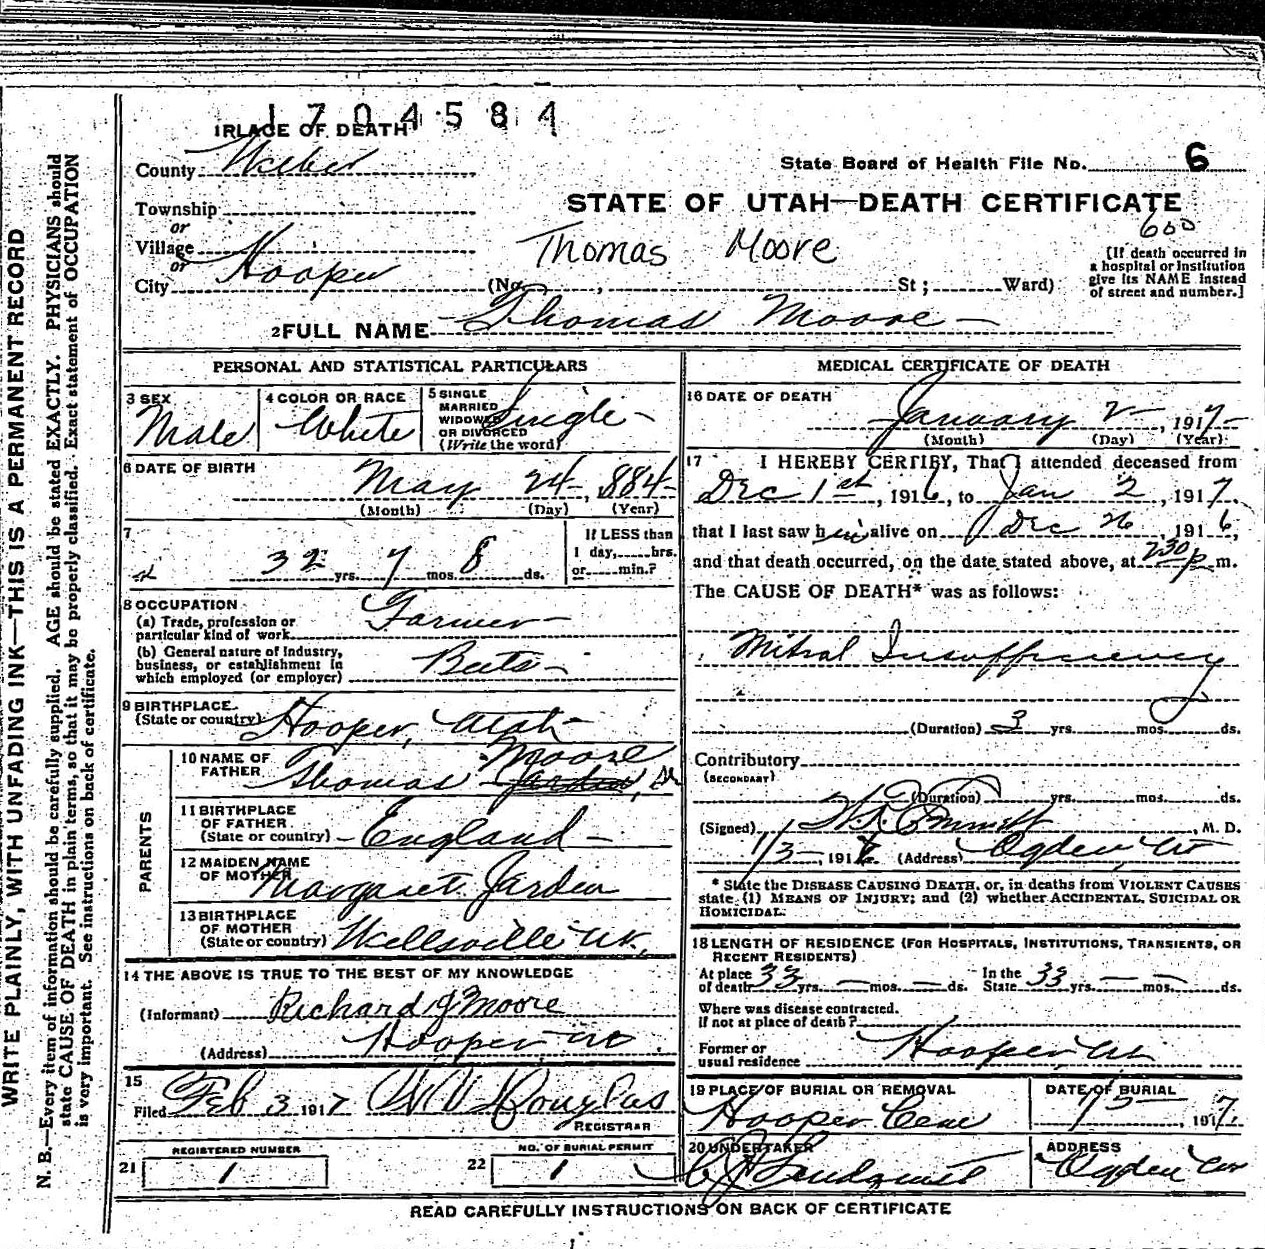 1704584
1 PLACE OF DEATH
County Weber
State Board of Health File No. 6
Township
STATE OF UTAH—DEATH CERTIFICATE
600
or
Village
Thomas Moore
or
City Hooper
(No. , St ; Ward)
[If death occurred in
a hospital or institution
give its NAME instead
of street and number.]
2 FULL NAME Thomas Moore
PERSONAL AND STATISTICAL PARTICULARS
3 SEX
Male
4 COLOR OR RACE
White
5 SINGLE
MARRIED
WIDOWED
OR DIVORCED
(Write the word)
Single
6 DATE OF BIRTH
May 24, 1884
(Month) (Day) (Year)
7
32 yrs. 7 mos. 8 ds.
If LESS than
1 day, hrs.
or min.?
8 OCCUPATION
(a) Trade, profession or
particular kind of work
Farmer
(b) General nature of industry,
business, or establishment in
which employed (or employer)
Beets
9 BIRTHPLACE
(State or country) Hooper, Utah
PARENTS
10 NAME OF
FATHER
Thomas Moore Jarden, Sr
11 BIRTHPLACE
OF FATHER
(State or country) England
12 MAIDEN NAME
OF MOTHER
Margaret Jarden
13 BIRTHPLACE
OF MOTHER
(State or country) Wellsville Ut.
14 THE ABOVE IS TRUE TO THE BEST OF MY KNOWLEDGE
(Informant) Richard J Moore
(Address) Hooper Ut
15
Filed Feb 3 1917 W W Douglas
REGISTRAR
REGISTERED NUMBER
21 1
NO. OF BURIAL PERMIT
22 1
MEDICAL CERTIFICATE OF DEATH
16 DATE OF DEATH
January 2, 1917
(Month) (Day) (Year)
17 I HEREBY CERTIFY, That I attended deceased from
Dec 1st, 1916, to Jan 2, 1917,
that I last saw him alive on Dec 26 1916,
and that death occurred, on the date stated above, at 230 p m.
The CAUSE OF DEATH* was as follows:
Mitral Insufficiency
(Duration) 3 yrs. mos. ds.
Contributory
(SECONDARY)
(Duration) yrs. mos. ds.
(Signed) , M. D.
1/3, 191 (Address) Ogden, Ut
* State the DISEASE CAUSING DEATH, or, in deaths from VIOLENT CAUSES
state (1) MEANS OF INJURY; and (2) whether ACCIDENTAL, SUICIDAL OR
HOMICIDAL.
18 LENGTH OF RESIDENCE (FOR HOSPITALS, INSTITUTIONS, TRANSIENTS, OR
RECENT RESIDENTS)
At place
of death 33 yrs. — mos. — ds.
In the
State 33 yrs. — mos. — ds.
Where was disease contracted.
If not at place of death?
Former or
usual residence Hooper, Ut
19 PLACE OF BURIAL OR REMOVAL
Hooper Cem
DATE OF BURIAL
1/5, 1917.
20 UNDERTAKER
ADDRESS
Ogden Ut
READ CAREFULLY INSTRUCTIONS ON BACK OF CERTIFICATE
WRITE PLAINLY, WITH UNFADING INK—THIS IS A PERMANENT RECORD
N. B.—Every item of information should be carefully supplied. AGE should be stated EXACTLY. PHYSICIANS should
state CAUSE OF DEATH in plain terms, so that it may be properly classified. Exact statement of OCCUPATION
is very important. See instructions on back of certificate.